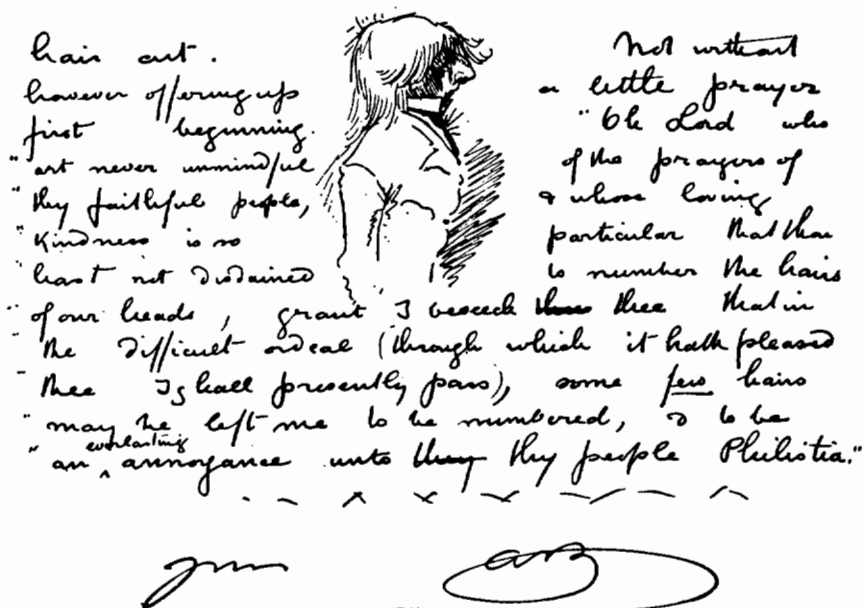 hair cut. Not without
however offering up a little prayer
first beginning. "Oh Lord who
"art never unmindful of the prayers of
"thy faithful people, & whose loving
"kindness is so particular that thou
"hast not disdained to number the hairs
"of our heads, grant I beseech thee that in
"the difficult ordeal (through which it hath pleased
"thee I shall presently pass), some few hairs
"may be left me to be numbered, & to be
"an everlasting annoyance unto they thy people Philistia."
AB